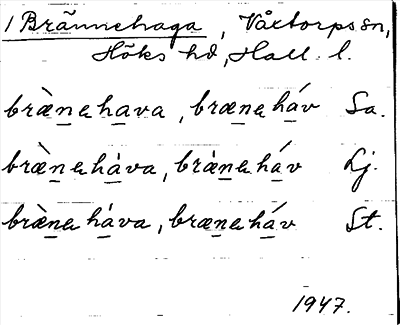 1 Brännehaga, Våxtorps sn,
Höks hd, Hall. l.
bræ̀nehava, bræneháv Sa.
bræ̀nehàva, bræ̀neháv Lj.
bræ̀nehàva, bræneháv St.
1947.